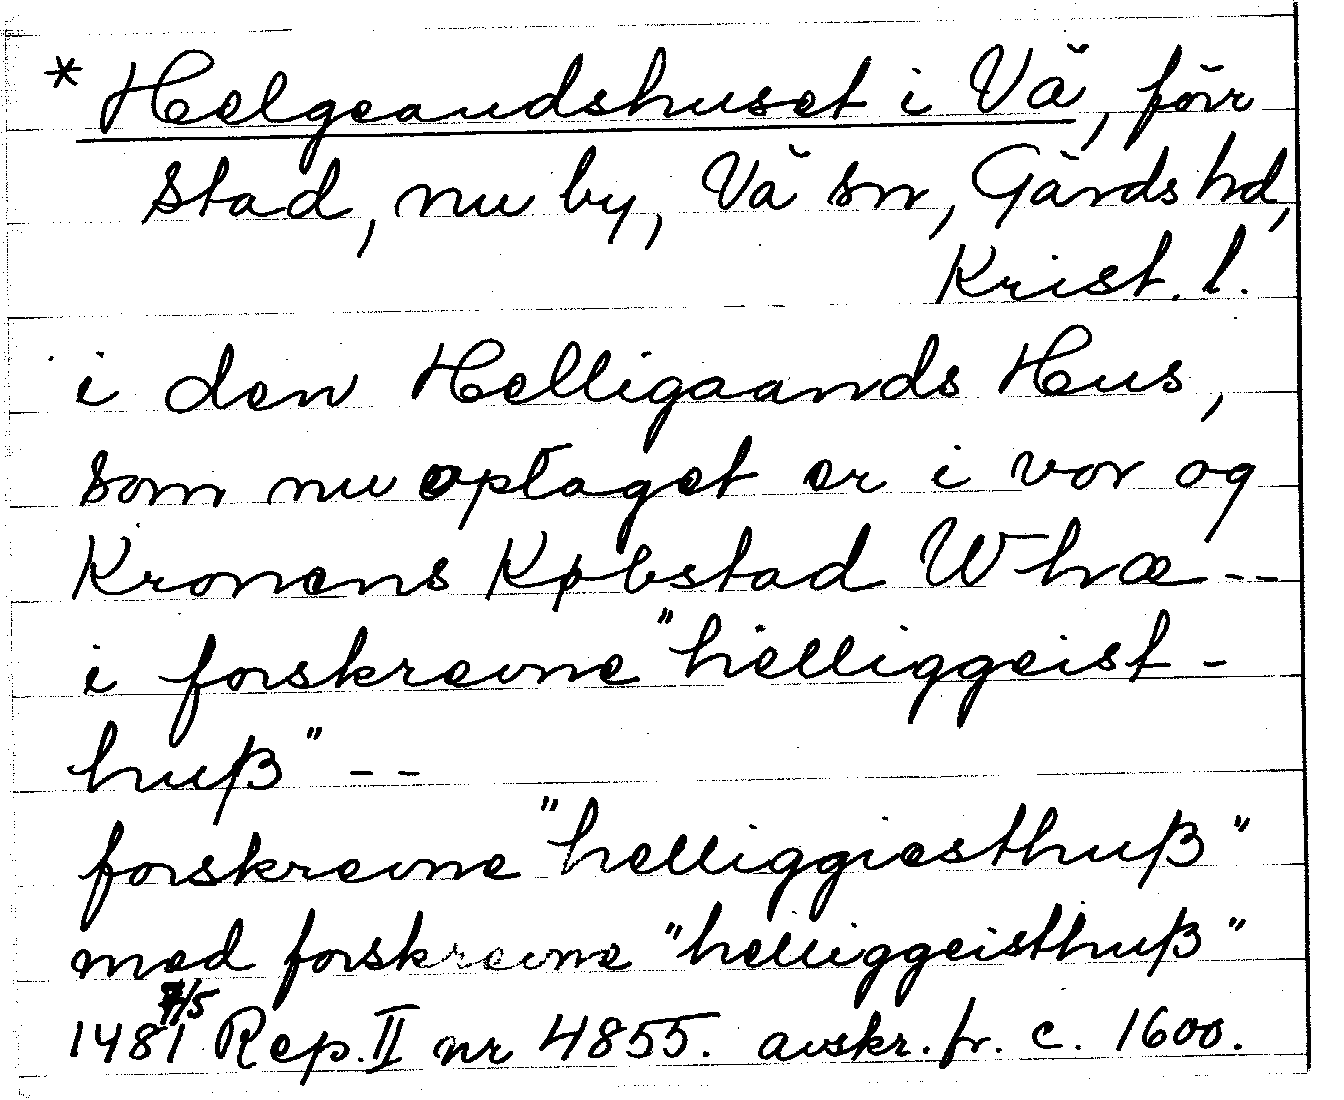 * Helgeandshuset i Vä, förr
stad, nu by, Vä sn, Gärds hd,
Krist. l.
i den Helligaands Hus,
som nu optaget er i vor og
Kronens Købstad Whæ --
i forskrevne "helliggeist-
huß" --
forskrevne "helliggiesthuß"
med forskrevne "helliggeisthuß"
1481 7/5 Rep. II nr 4855. avskr. fr. c. 1600.